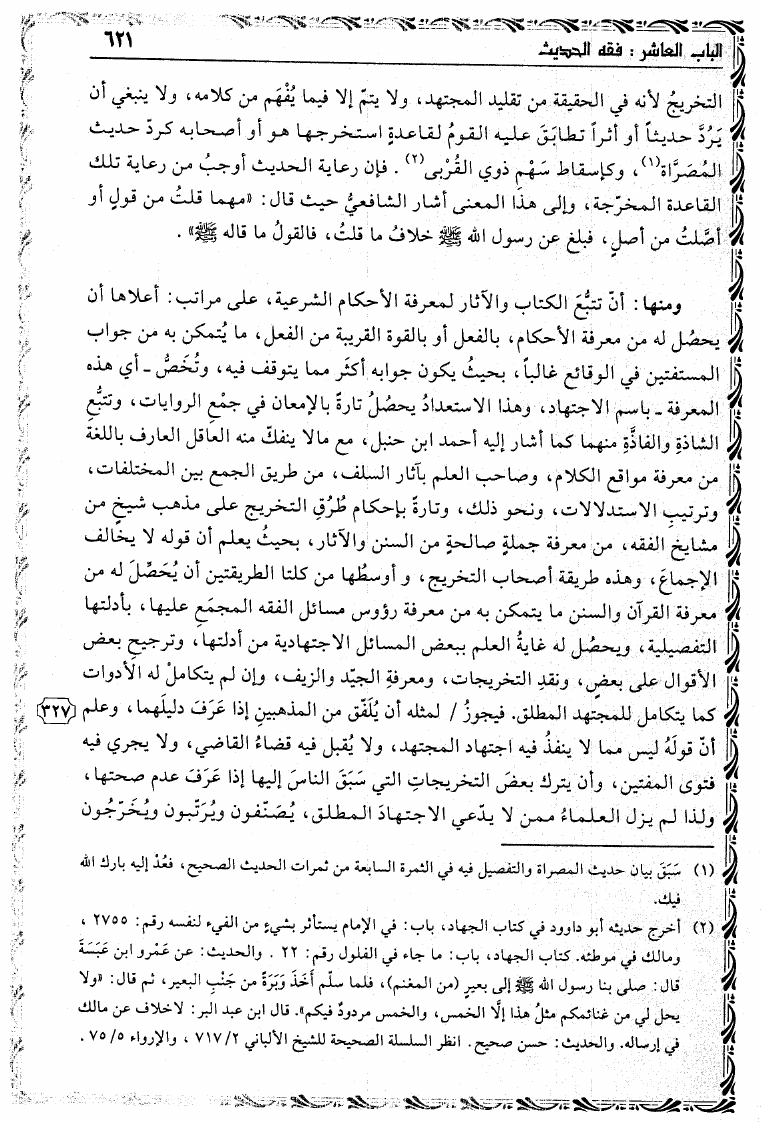 الباب العاشر : فقه الحديث
٦٢١
التخريجُ لأنه في الحقيقة من تقليد المجتهد، ولا يتمّ إلا فيما يُفْهَم من كلامه، ولا ينبغي أن
يَرُدَّ حديثاً أو أثراً تطابَقَ عليه القومُ لقاعدةٍ استخرجها هو أو أصحابه كردّ حديث
المُصَرَّاة(١)، وكإسقاط سَهْمِ ذوي القُرْبى(٢). فإن رعاية الحديث أوجبُ من رعاية تلك
القاعدة المخرّجة، وإلى هذا المعنى أشار الشافعيُّ حيث قال: «مهما قلتُ من قولٍ أو
أصَّلتُ من أصلٍ، فبلغ عن رسول الله ﷺ خلافُ ما قلتُ، فالقولُ ما قاله ﷺ».
ومنها: أنّ تتبُّعَ الكتاب والآثار لمعرفة الأحكام الشرعية، على مراتب: أعلاها أن
يحصُل له من معرفة الأحكام، بالفعل أو بالقوة القريبة من الفعل، ما يُتمكن به من جواب
المستفتين في الوقائع غالباً، بحيثُ يكون جوابه أكثَر مما يتوقف فيه، وتُخَصُّ ـ أي هذه
المعرفة ـ باسم الاجتهاد، وهذا الاستعدادُ يحصُلُ تارةً بالإمعان في جمْعِ الروايات، وتتبُّعِ
الشاذةِ والفاذَّةِ منهما كما أشار إليه أحمد ابن حنبل، مع مالا ينفكّ منه العاقل العارف باللغة
من معرفة مواقع الكلام، وصاحب العلم بآثار السلف، من طريق الجمع بين المختلفات،
وترتيبِ الاستدلالات، ونحو ذلك، وتارةً بإحكام طُرُقِ التخريج على مذهب شيخٍ من
مشايخ الفقه، من معرفة جملةٍ صالحةٍ من السنن والآثار، بحيثُ يعلم أن قوله لا يخالف
الإجماعَ، وهذه طريقة أصحاب التخريج، و أوسطُها من كلتا الطريقتين أن يُحَصِّلَ له من
معرفة القرآن والسنن ما يتمكن به من معرفة رؤوس مسائل الفقه المجمَع عليها، بأدلتها
التفصيلية، ويحصُل له غايةُ العلم ببعض المسائل الاجتهادية من أدلتها، وترجيحِ بعض
الأقوال على بعضٍ، ونقدِ التخريجات، ومعرفةِ الجيّد والزيف، وإن لم يتكاملْ له الأدوات
كما يتكامل للمجتهد المطلق. فيجوزُ / لمثله أن يُلَفّق من المذهبينِ إذا عَرَفَ دليلَهما، وعلم
٣٢٧
أنّ قولَهُ ليس مما لا ينفذُ فيه اجتهاد المجتهد، ولا يُقبل فيه قضاءُ القاضي، ولا يجري فيه
فتوى المفتين، وأن يترك بعضَ التخريجاتِ التي سَبَقَ الناسَ إليها إذا عَرَفَ عدم صحتها،
ولذا لم يزل العلماءُ ممن لا يدّعي الاجتهادَ المطلق، يُصَنّفون ويُرَتّبون ويُخَرّجُون
(١) سَبَقَ بيان حديث المصراة والتفصيل فيه في الثمرة السابعة من ثمرات الحديث الصحيح، فعُدْ إليه بارك الله
فيك.
(٢) أخرج حديثه أبو داوود في كتاب الجهاد، باب: في الإمام يستأثر بشيءٍ من الفيء لنفسه رقم: ٢٧٥٥ ،
ومالك في موطئه. كتاب الجهاد، باب: ما جاء في الغلول رقم: ٢٢ . والحديث: عن عَمْرو ابن عَبَسَةَ
قال: صلى بنا رسول الله ﷺ إلى بعيرٍ (من المغنم)، فلما سلّم أَخَذَ وَبَرَةً من جَنْبِ البعير، ثم قال: «ولا
يحل لي من غنائمكم مثلُ هذا إلَّا الخمس، والخمس مردودٌ فيكم». قال ابن عبد البر: لاخلاف عن مالك
في إرساله. والحديث: حسن صحيح. انظر السلسلة الصحيحة للشيخ الألباني ٧١٧/٢ ، والإرواء ٧٥/٥ .